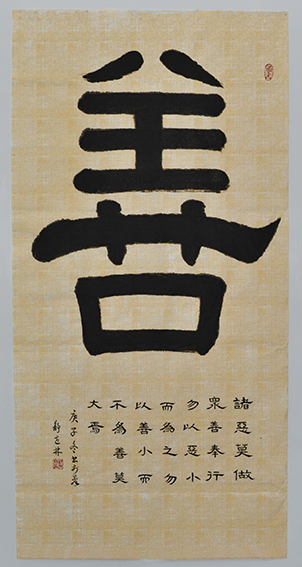 善
諸惡莫做
衆善奉行
勿以惡小
而為之勿
以善小而
不為善莫
大焉
庚子冬